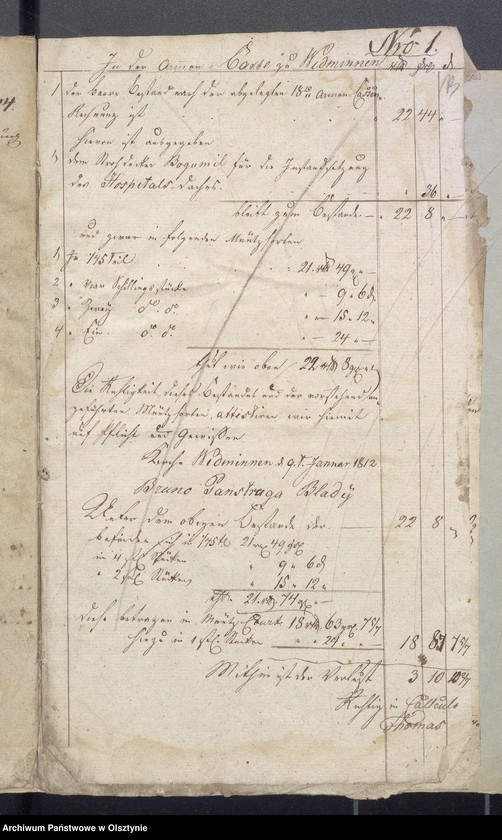 Nro 1.
In der Armen-Casse zu Widminnen
1 der baare Bestand nach der abgelegten Armen Cassen
Rechnung ist 22 44 -
hievon ist ausgegeben
1 dem Bogumil für die Instandsetzung
des Hospitals-Dachs. 36 -
bleibt zum Bestande - 22 8 -
und zwar in folgenden Müntzsorten
1 In 1/45 Theil 21. rtl 49 gr -
2 " Vier Schillingsstücke - 9 " 6 d
3 " Zwey do. do. - 15 " 12 "
4 " Ein do. do. - 24 " -
thut wie oben 22 rtl 8 gr
Die Richtigkeit dieses Bestandes und der vorstehend an
geführten Müntzsorten attestiren wir hiemit
auf Pflicht und Gewissen
Kirche Widminnen d 9. t. Januar 1812
Bruno Panstruga Bladÿ
Unter dem obigen Bestande der - 22 8 "
befinden sich in 21 rtl 49 gr
in 4 Stücken " 9 " 6 d
" 2 Stücken " 15 " 12 "
21. rtl. 74 gr -
diese betragen in Müntz Courant 18 rtl 63 gr. 7 5/7
hiezu in 1 Stücken " 24 " - 18 87 7 5/7
Mithin ist der Verlust 3 10 10 2/7
Richtig in Calculo
Thomas
Archiwum Państwowe w Olsztynie